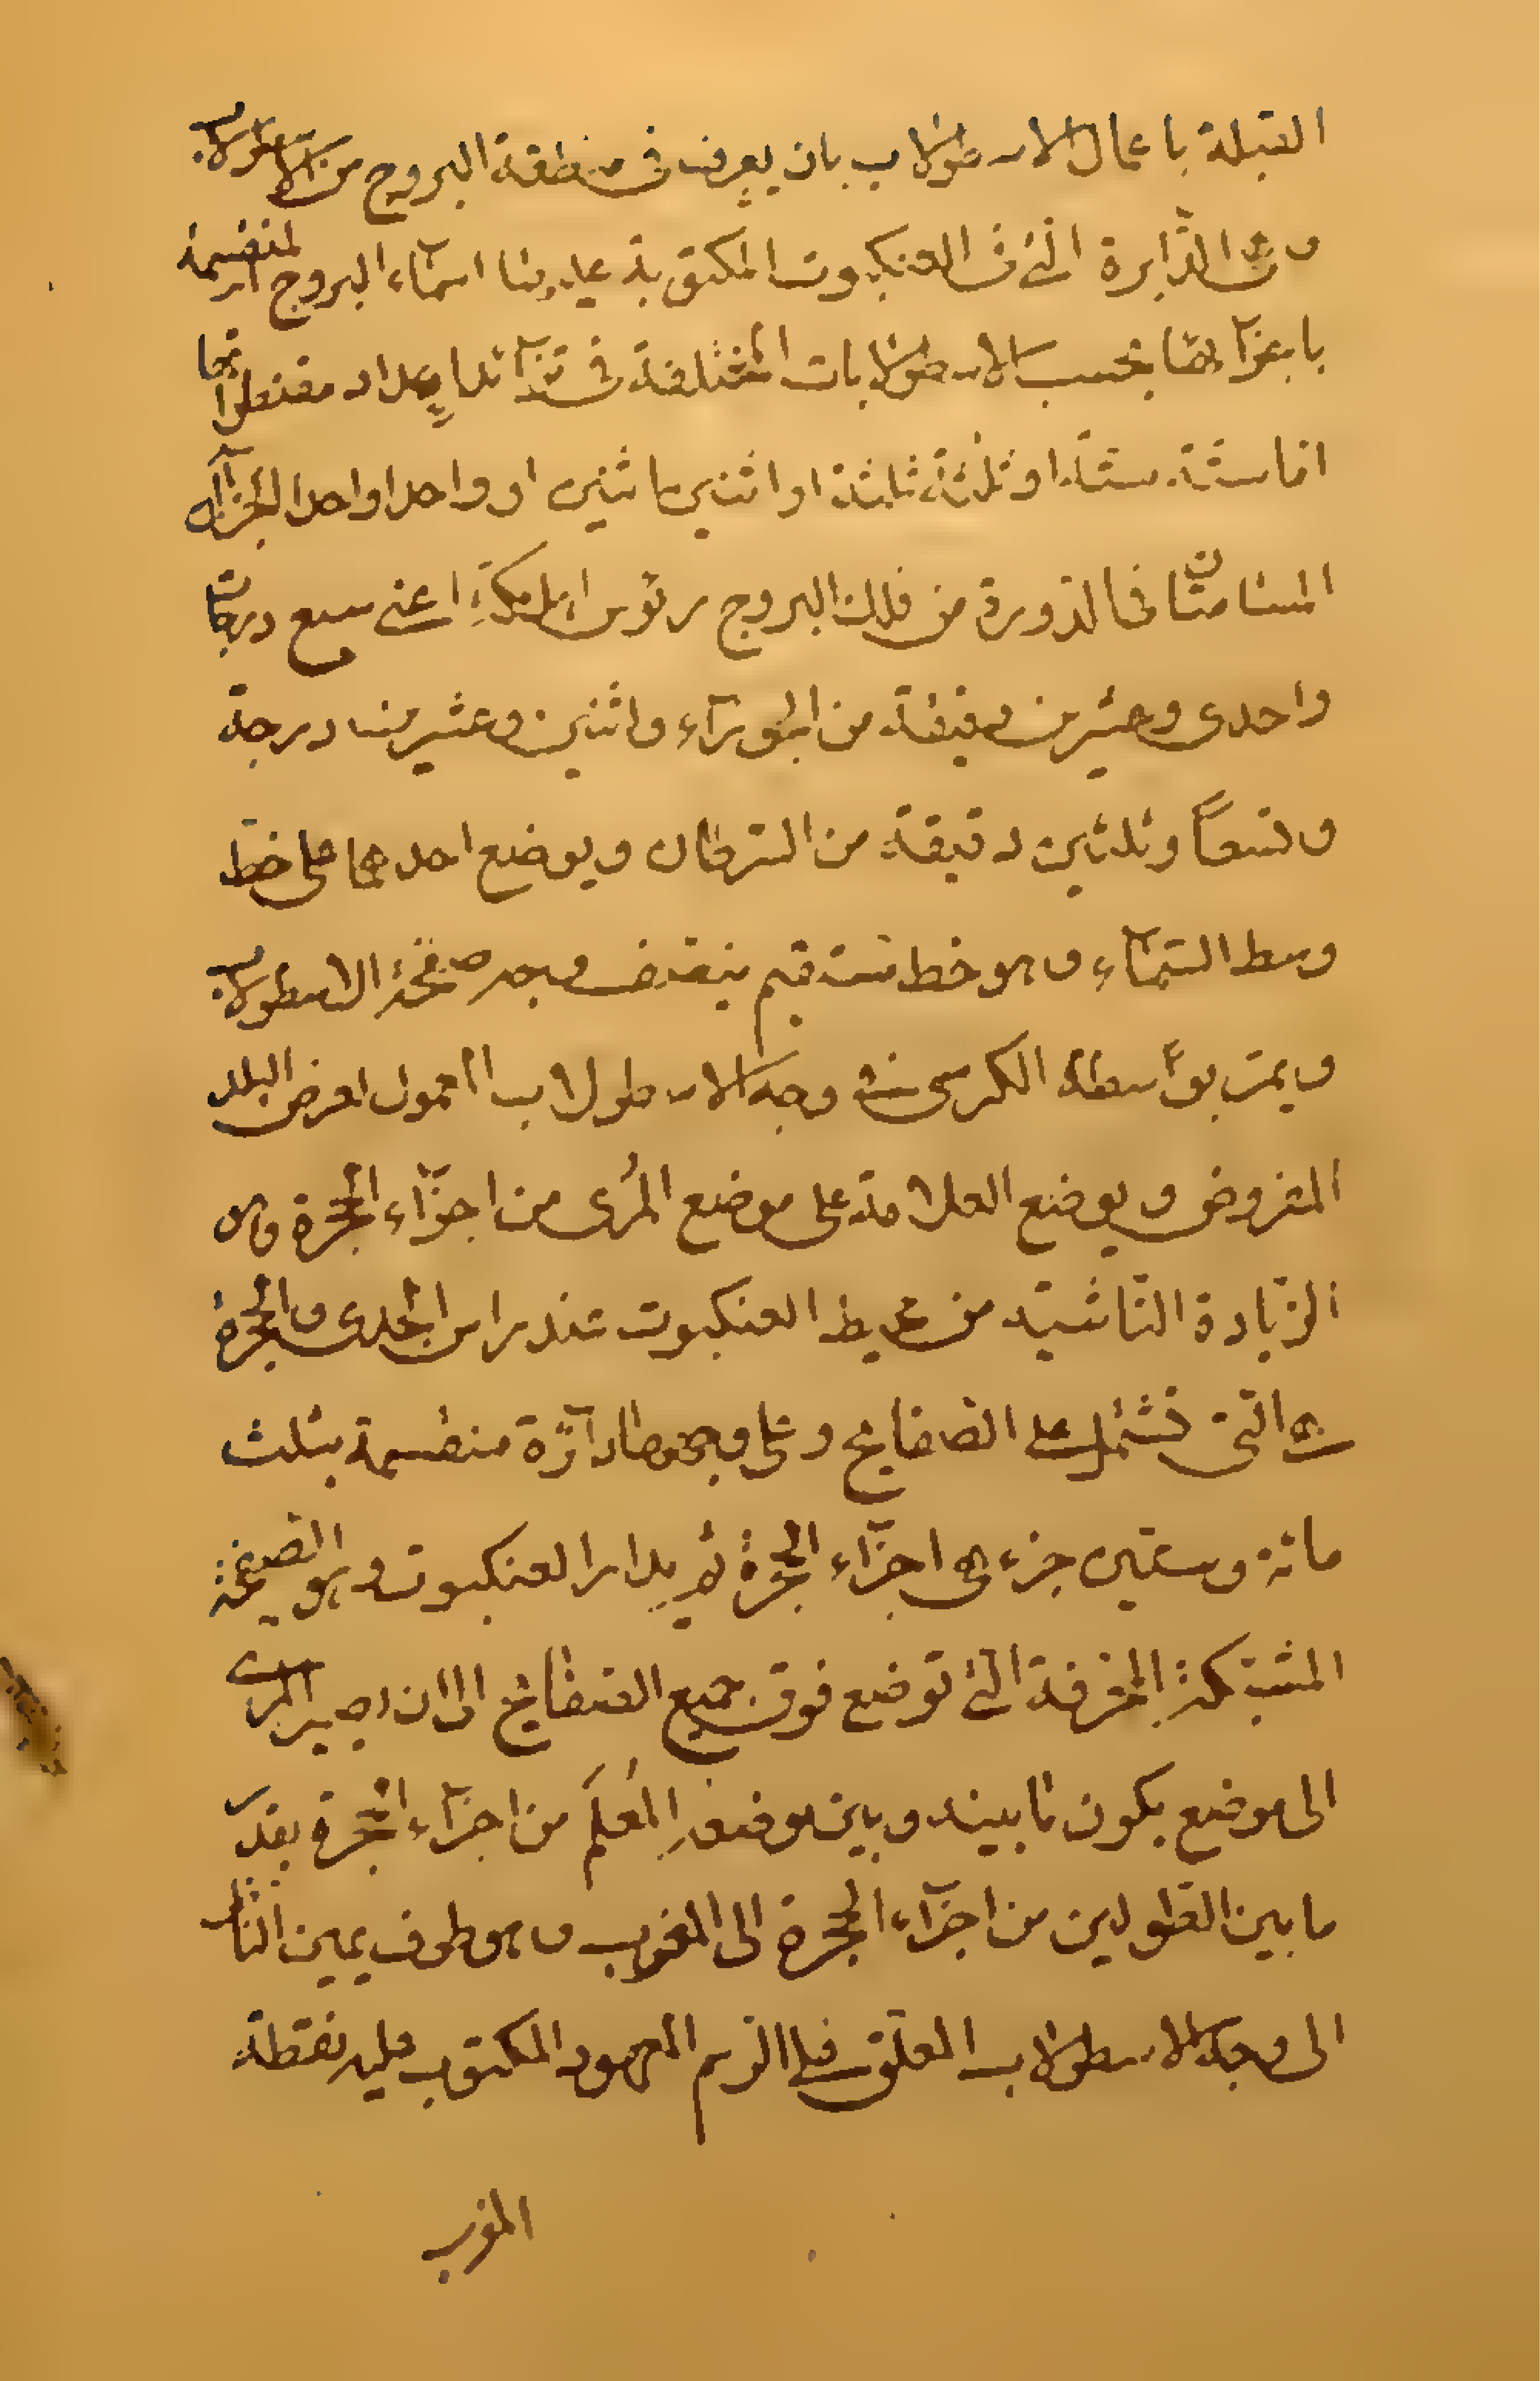 القبلة باعمال الاسطرلاب بان يعرف فى منطقة البروج من الاسطرلاب
وهى الدّايرة الّتى فى العنكبوت المكتوبة عليها اسمآء البروج المنقسمة
باجزآئها بحسب الاسطرلابات المختلفة فى تزآئد اعداد مقنطراتها
امّا ستّة ستّة او ثلثة ثلثة او اثنين اثنين او واحدا واحدا الجزآن
المسامتان فى الدّورة من فلك البروج رؤس اهل مكّة اعنى سبع درجات
واحدى وعشرين دقيقة من الجوزآء واثنين وعشرين درجة
وتسعًا وثلثين دقيقة من السّرطان ويوضع احدهما على خطّ
وسط السّمآء وهو خط مستقيم ينصّف صفحة الاسطرلاب
ويمرّ بواسطة الكرسى فى وجه الاسطرلاب المعمول لعرض البلد
المفروض ويوضع العلامة على موضع المُرى من اجزآء الحجرة وهى
الزّيادة النّاشية من محيط العنكبوت عند راس الجدى والحجرة
هى التى تشتمل على الصّفايح وعلى وجهها دآئرة منقسمة بثلث
مائة وستّين جزء هى اجزآء الحجرة ثم يدار العنكبوت وهو الصفيحة
المشبّكة المخرّقة الّتى توضع فوق جميع الصّفايح الى ان يصير المرى
الى موضع يكون ما بينه وبين موضعه المُعلَم من اجزآء الحجرة بقدر
ما بين الطّولين من اجزآء الحجرة الى المغرب وهو طرف يمين النّاظر
الى وجه الاسطرلاب المعلّق على الرّسم المعهود المكتوب عليه نقطة
المغرب